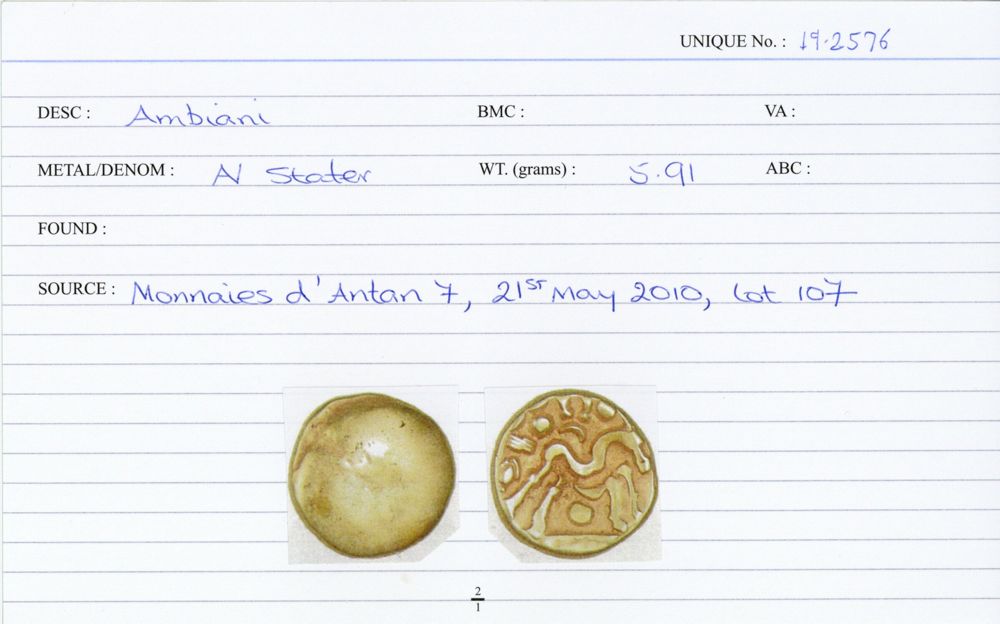 UNIQUE No. : 19.2576
DESC : Ambiani BMC : VA :
METAL/DENOM : N Stater WT. (grams) : 5.91 ABC :
FOUND :
SOURCE : Monnaies d'Antan 7, 21ST May 2010, Lot 107
2
1